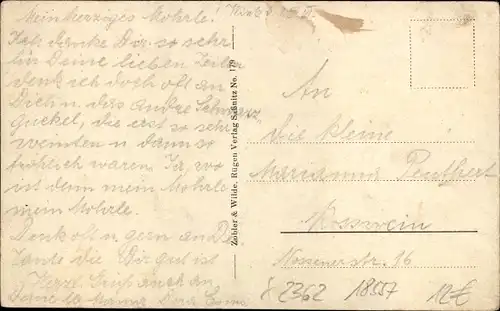 Mein herziges Mohrle!
Ich danke Dir so sehr
für Deine lieben Zeilen
denk ich doch oft an
Dich u. das andre Schwarz
guckel, die erst so sehr
weinten u dann so
fröhlich waren. Ja, wo
ist denn mein Mohrle
mein Mohrle.
Denk oft u. gern an De
Tante die Dir gut ist
Herzl. Gruß auch an
Deine lb Mama Deine
Zobler & Wilde, Rügen Verlag Saßnitz No. 179
An
die kleine
Marianne
Rosswein
Nossenerstr. 16
2362 18557 12€